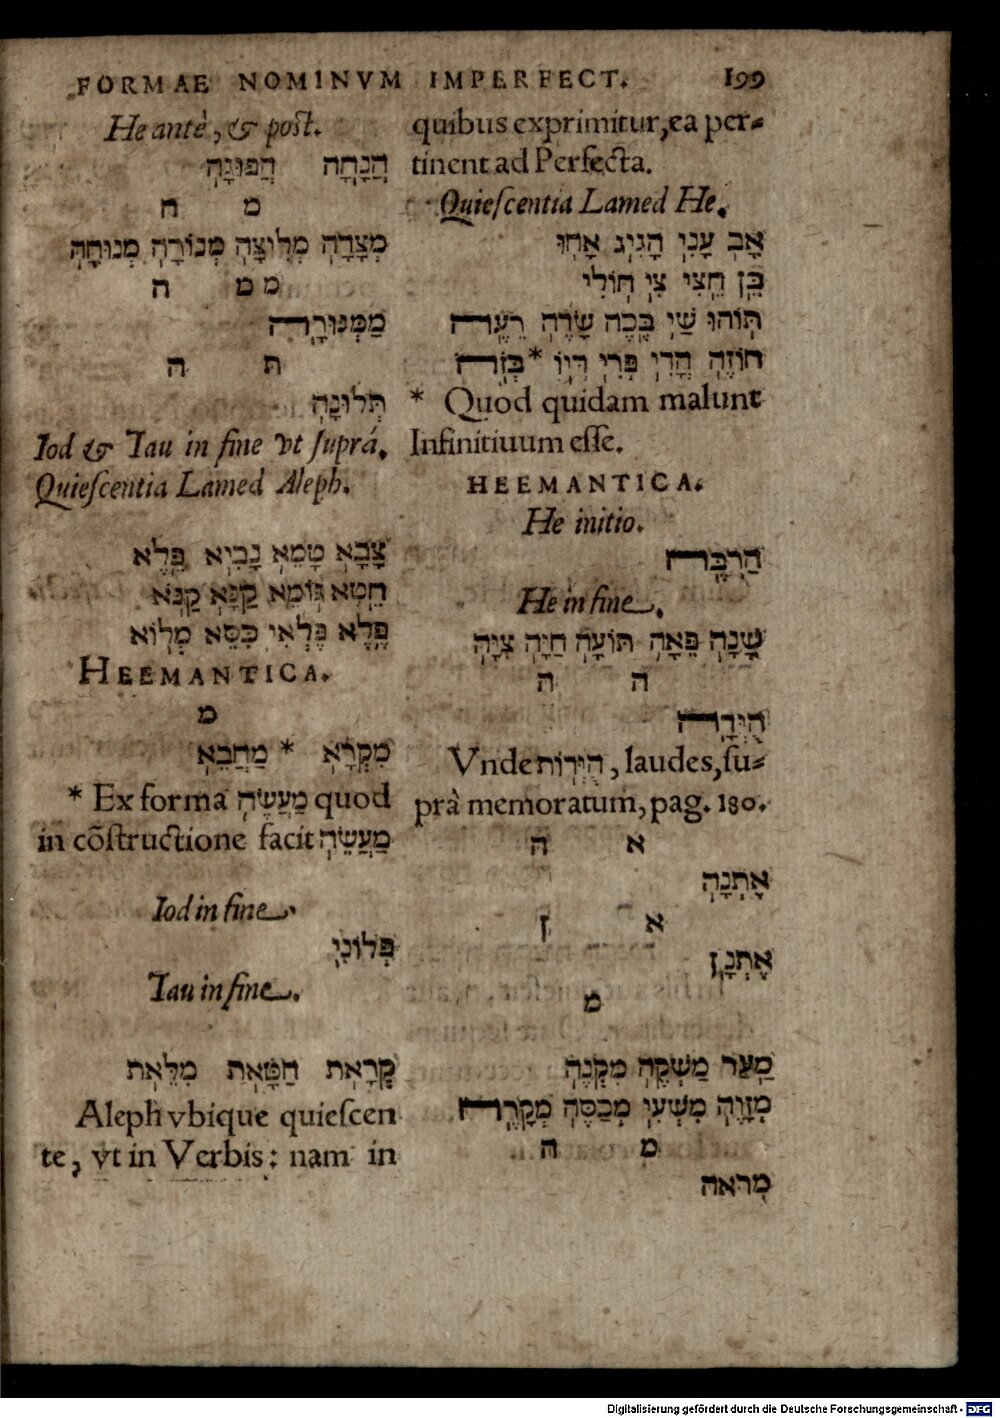 FORMAE NOMINVM IMPERFECT. 199
He antè, & post.
הֲנָחָה הֲפוּגָה
מ ה
מְצָדָה מְלִיצָה מְנוֹרָה מְנוּחָה
מ מ ה
מַמְּגוּרָה
ת ה
תְּלוּנָה
Iod & Tau in fine vt suprá.
Quiescentia Lamed Aleph.
צָבָא טָמֵא נָבִיא פֶּלֶא
חֵטְא גּוֹמֵא קַנָּא קַנֹּא
פֶּלֶא פִּלְאִי כִּסֵּא מְלוֹא
HEEMANTICA.
מ
מִקְרָא * מַחֲבֵא
* Ex forma מַעֲשֶׂה quod
in cõstructione facit מַעֲשֵׂה
Iod in fine.
פְּלוֹנִי
Tau in fine.
קְרָאת חַטָּאת מִלֵּאת
Aleph vbique quiescen
te, vt in Verbis: nam in
quibus exprimitur, ea per-
tinent ad Perfecta.
Quiescentia Lamed He.
אָב עָנִי הָגִיג אָחוּ
בֵּן חֵצִי צִי חוֹלִי
תּוֹהוּ שַׁי בֶּכֶה שָׂדֶה רֵעֶה
חוֹזֶה הֲדִי פְּרִי דְּיוֹ * בְּזֹה
* Quod quidam malunt
Infinitiuum esse.
HEEMANTICA.
He initio.
הַרְבֵּה
He in fine.
שָׁנָה פֵּאָה תּוֹעָה חַיָּה צִיָּה
ה ה
הֻיְּדָה
Vnde הֻיְּדוֹת, laudes, su-
prà memoratum, pag. 180.
א ה
אֶתְנָה
א ן
אֶתְנָן
מ
מַעַר מַשְׁקֶה מִקְנֶה
מְזָוֶה מִשְׁעִי מְכַסֶּה מְקָרֶה
מ ה
מֻרְאָה